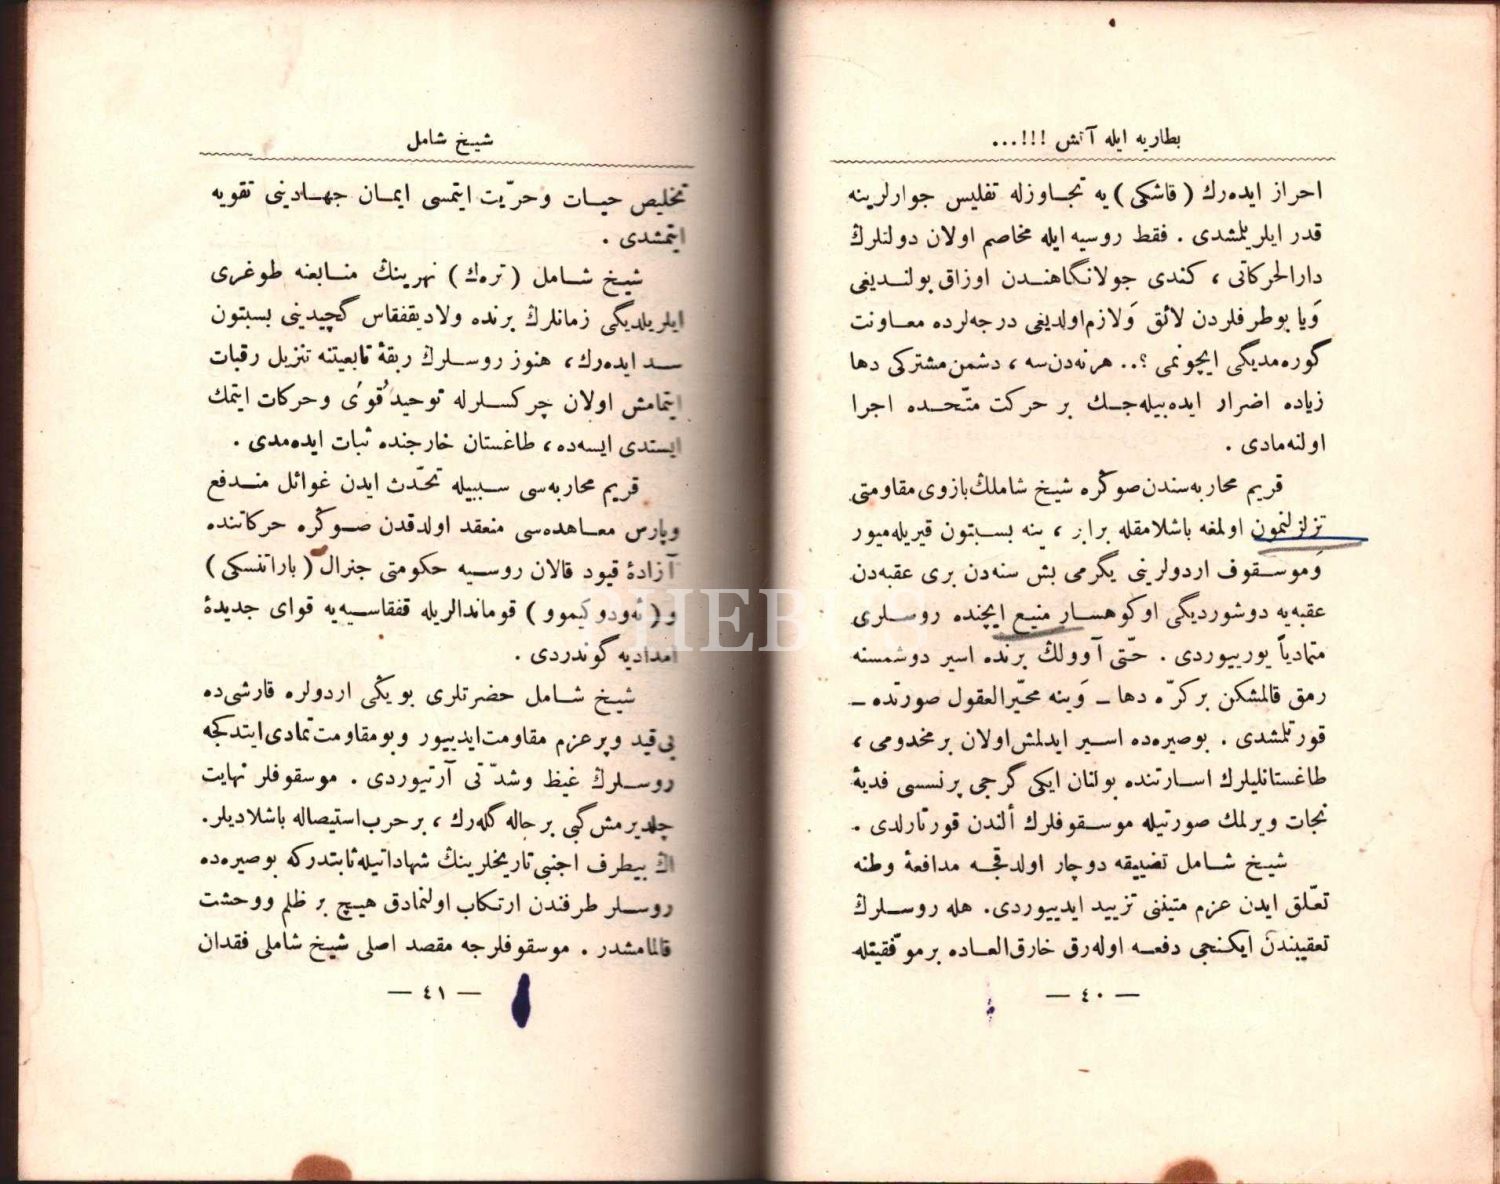 بطاریه ایله آتش !!!...
احراز ایده‌رك ( قاشکی ) یه تجاوزله تفلیس جوارلرینه
قدر ایلریلمشدی . فقط روسیه ایله مخاصم اولان دولتلرڭ
دارالحرکاتی ، کندی جولانگاهندن اوزاق بولندیغی
وَیا بوطرفلردن لائق وَلازم‌اولدیغی درجه‌لرده معاونت
گوره‌مدیگی ایچونمی ؟.. هرنه‌دن‌سه ، دشمن مشترکی دها
زیاده اضرار ایده‌بیله‌جك بر حرکت متّحده اجرا
اولنه‌مادی .
قریم محاربه‌سندن صوڭره شیخ شاملڭ بازوی مقاومتی
تزلزلنمون اولمغه باشلامقله برابر ، ینه بسبتون قیریله‌میور
وَموسقوف اردولرینی یگرمی بش سنه‌دن بری عقبه‌دن
عقبه‌یه دوشوردیگی اوکوهسار منیع ایچنده روسلری
متمادیاً یورییوردی . حتّی آوولڭ برنده اسیر دوشمسنه
رمق قالمشکن برکرّه دها ــ وَینه محیّرالعقول صورتده ــ
قورتلمشدی . بوصیره‌ده اسیر ایدلمش‌اولان برمخدومی ،
طاغستانلیلرك اسارتنده بولنان ایکی گرجی پرنسسی فدیۀ
نجات ویرلمك صورتیله موسقوفلرك ألندن قورتارلدی .
شیخ شامل تضییقه دوچار اولدقجه مدافعۀ وطنه
تعلّق ایدن عزم متیننی تزیید ایدییوردی. هله روسلرڭ
تعقیبندن ایکنجی دفعه اوله‌رق خارق‌العاده برموفّقیتله
— ٤٠ —
شیخ شامل
تخلیص حیات وحرّیت ایتمسی ایمان جهادینی تقویه
ایتمشدی .
شیخ شامل ( تره‌ك ) نهرینڭ منابعنه طوغری
ایلریلدیگی زمانلرڭ برنده ولادیقفقاس گچیدینی بسبتون
سد ایده‌رك، هنوز روسلرڭ ربقۀ تابعیتنه تنزیل رقبات
ایتمامش اولان چرکسلرله توحید قوُی وحرکات ایتمك
ایستدی ایسه‌ده ، طاغستان خارجنده ثبات ایده‌مدی .
قریم محاربه‌سی سببیله تحدّث ایدن غوائل مندفع
وپارس معاهده‌سی منعقد اولدقدن صوڭره حرکاتنده
آزادۀ قیود قالان روسیه حکومتی جنرال ( باراتنسکی )
و ( ئه‌ودوکیموو ) قوماندالریله قفقاسیه‌یه قوای جدیدۀ
امدادیه گوندردی .
شیخ شامل حضرتلری بویگی اردولره قارشی‌ده
بی‌قید وپرعزم مقاومت‌ایدییور وبومقاومت تمادی‌ایتدکجه
روسلرڭ غیظ وشدّتی آرتیوردی . موسقوفلر نهایت
چلدیرمش گبی برحاله گله‌رك ، برحرب استیصاله باشلادیلر.
اڭ بیطرف اجنبی تاریخلرینڭ شهاداتیله ثابتدرکه بوصیره‌ده
روسلر طرفندن ارتکاب اولنمادق هیچ بر ظلم ووحشت
قالمامشدر . موسقوفلرجه مقصد اصلی شیخ شاملی فقدان
— ٤١ —